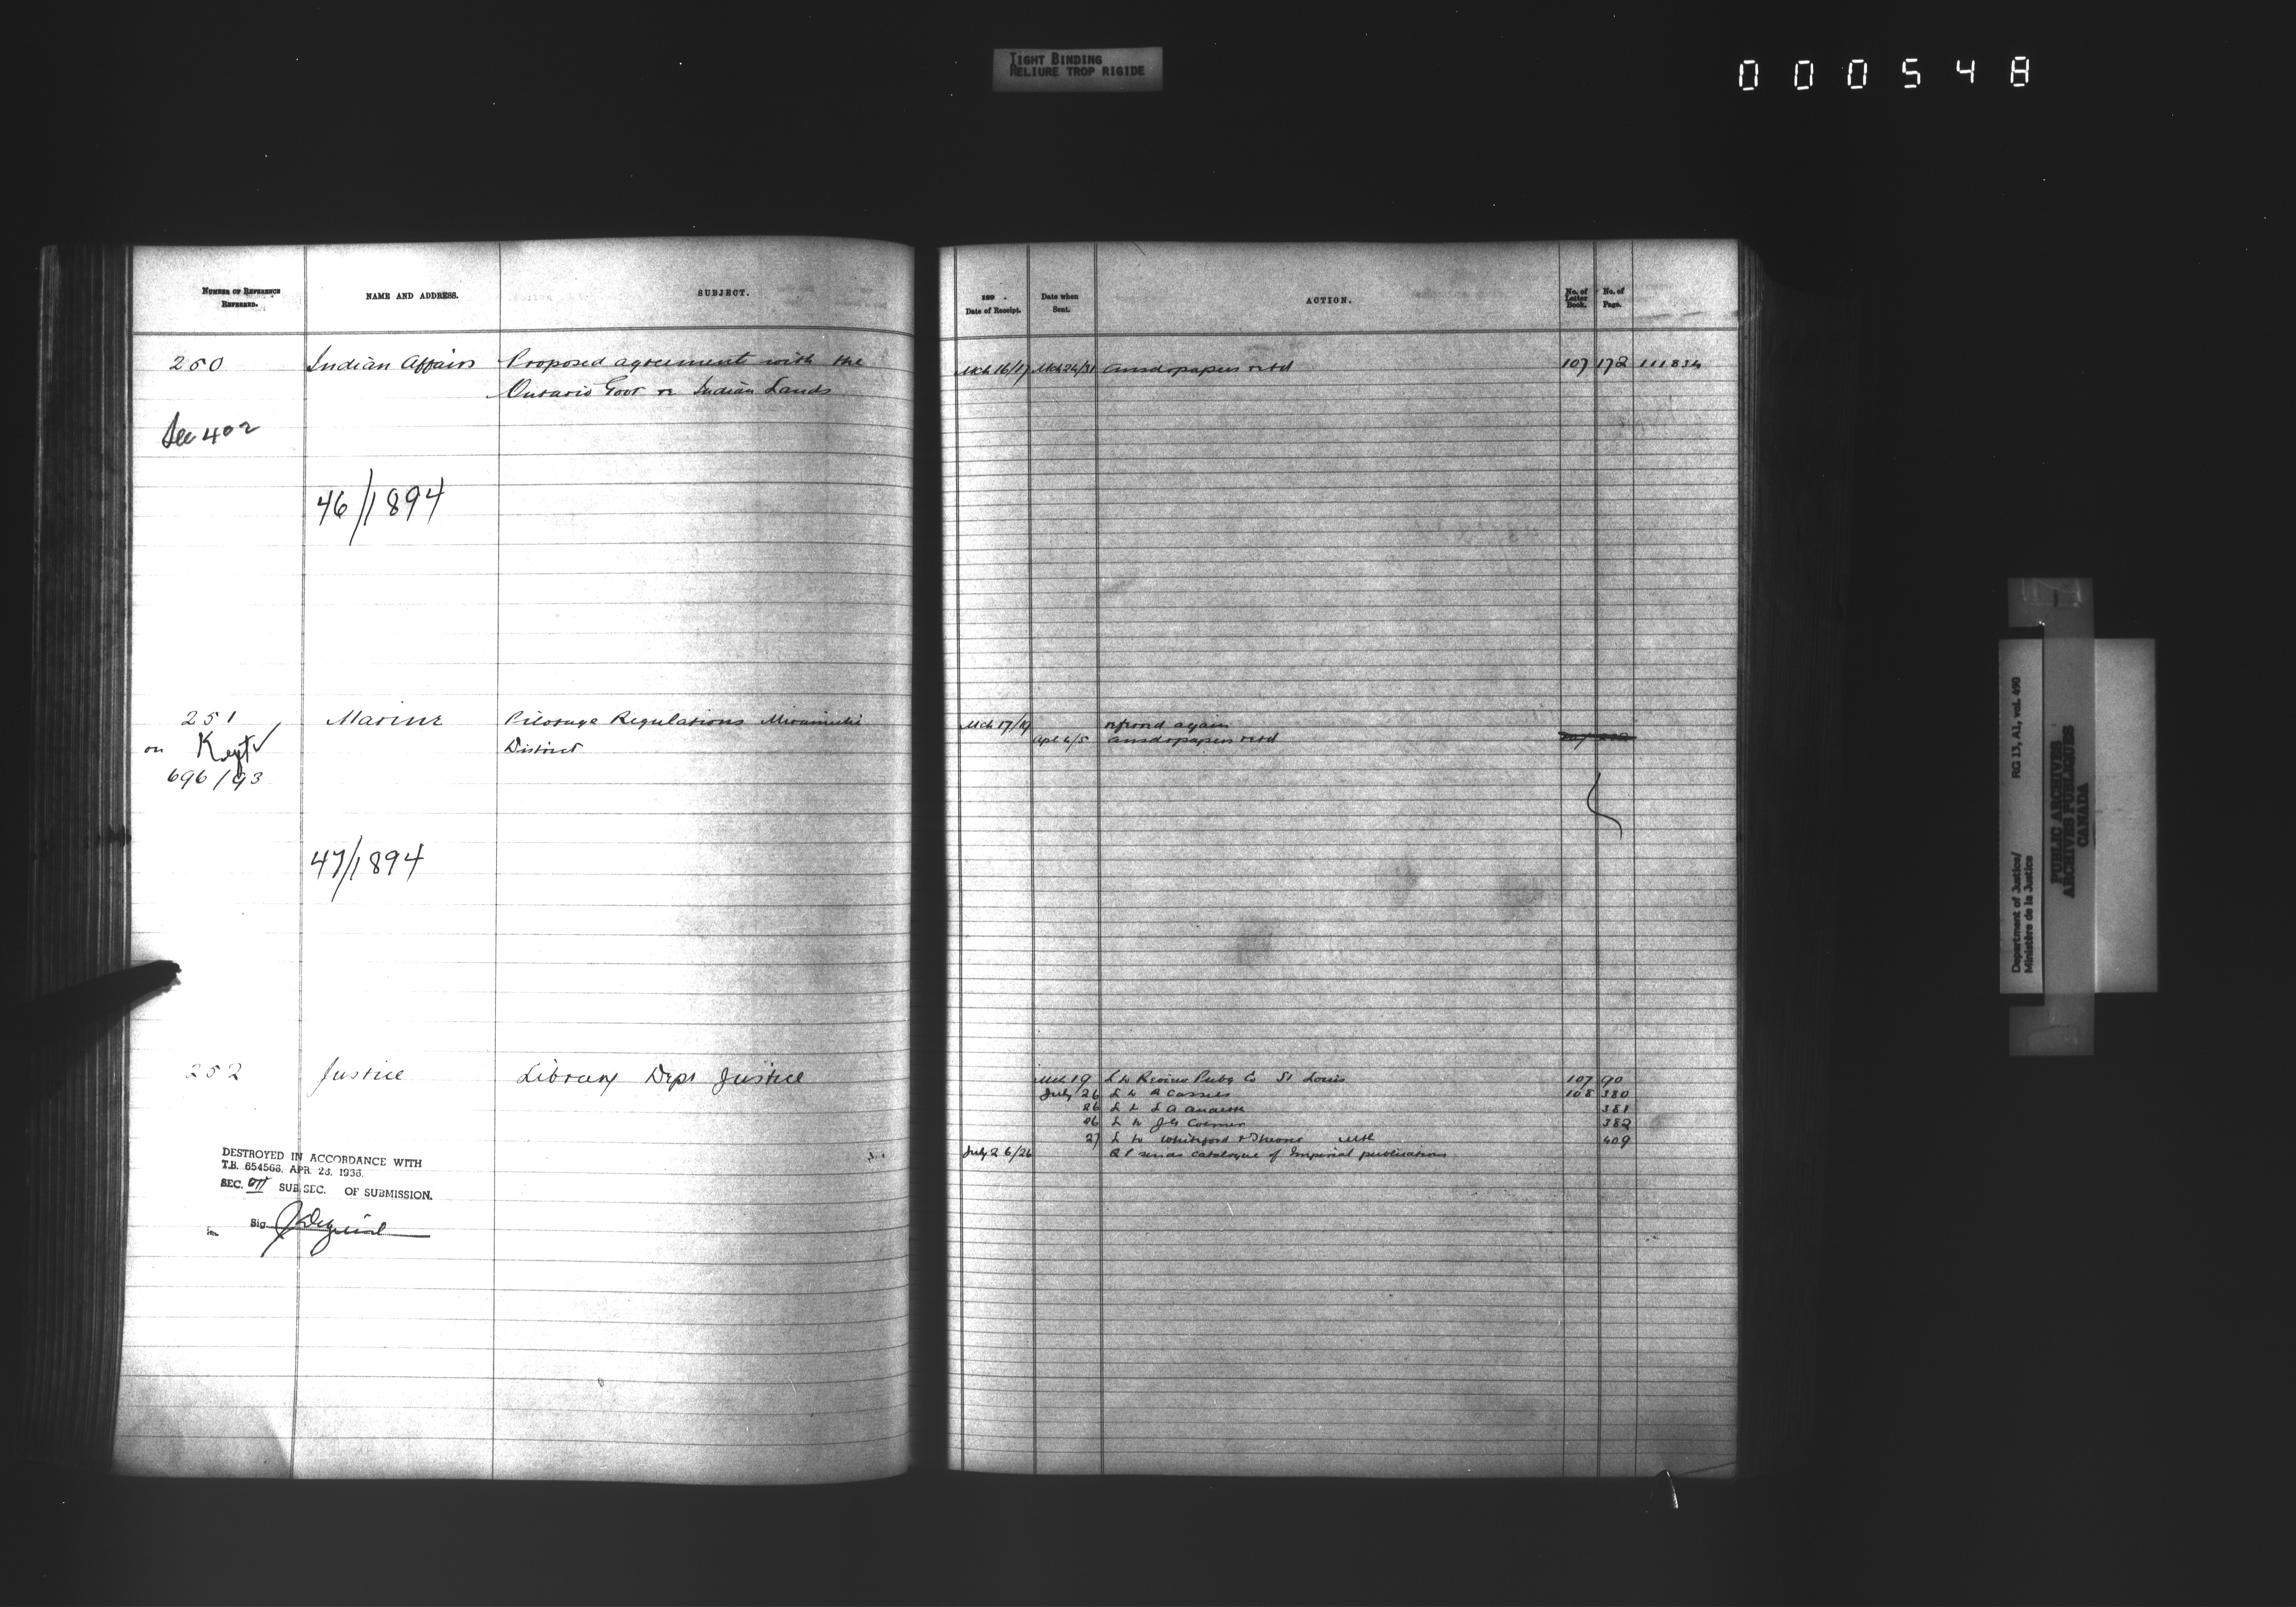 TIGHT BINDING
RELIURE TROP RIGIDE
000548
NUMBER OF REFERENCE REFERRED.
NAME AND ADDRESS.
SUBJECT.
189 .
Date of Receipt.
Date when Sent.
ACTION.
No. of Letter Book.
No. of Page.
250 Indian Affairs Proposed agreement with the Mch 16/17 Mch 24/31 ansd papers retd 107 172 111834
Ontario Govt re Indian Lands
See 402
46/1894
251 Marine Pilotage Regulations Miramichi Mch 17/19 refered again
on Kept District Apl 4/5 ansd papers retd
696/93
47/1894
252 Justice Library Dept Justice Mch 19 L to Review Pubg Co St Louis 107 90
July 26 L to Cassels 108 380
26 L to L A Audette 381
26 L to J G Colmer 382
27 L to Whiteford & Theoret Mtl 409
July 26/26 Q P sends catalogue of Imperial publications
DESTROYED IN ACCORDANCE WITH
T.B. 654568, APR. 23, 1936.
SEC. SUB SEC. OF SUBMISSION.
Sig.
Department of Justice/
Ministère de la Justice
RG 13, A1, vol. 490
PUBLIC ARCHIVES
ARCHIVES PUBLIQUES
CANADA